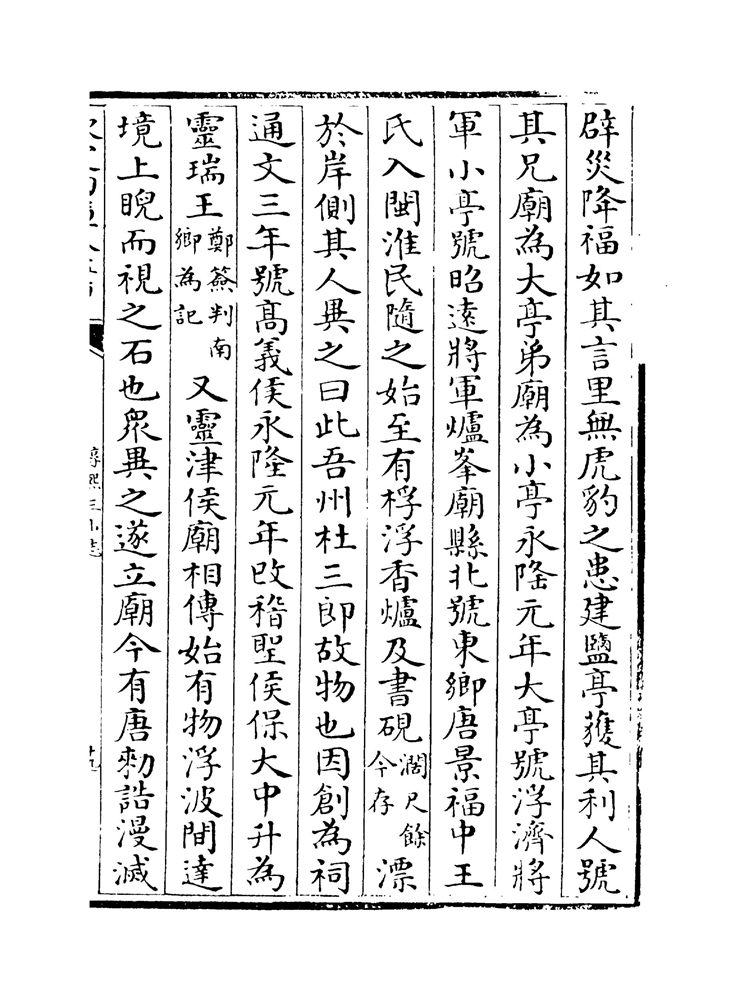 辟災降福如其言里無虎豹之患建鹽亭獲其利人號
其兄廟為大亭弟廟為小亭永隆元年大亭號浮濟將
軍小亭號昭遠將軍爐峯廟縣北號東鄉唐景福中王
氏入閩淮民隨之始至有桴浮香爐及書硯濶尺餘今存漂
於岸側其人異之曰此吾州杜三郎故物也因創為祠
通文三年號髙義侯永隆元年改稽聖侯保大中升為
靈瑞王鄭簽判南鄉為記又靈津侯廟相傳始有物浮波間達
境上睨而視之石也衆異之遂立廟今有唐勅誥漫滅
淳熙三山志